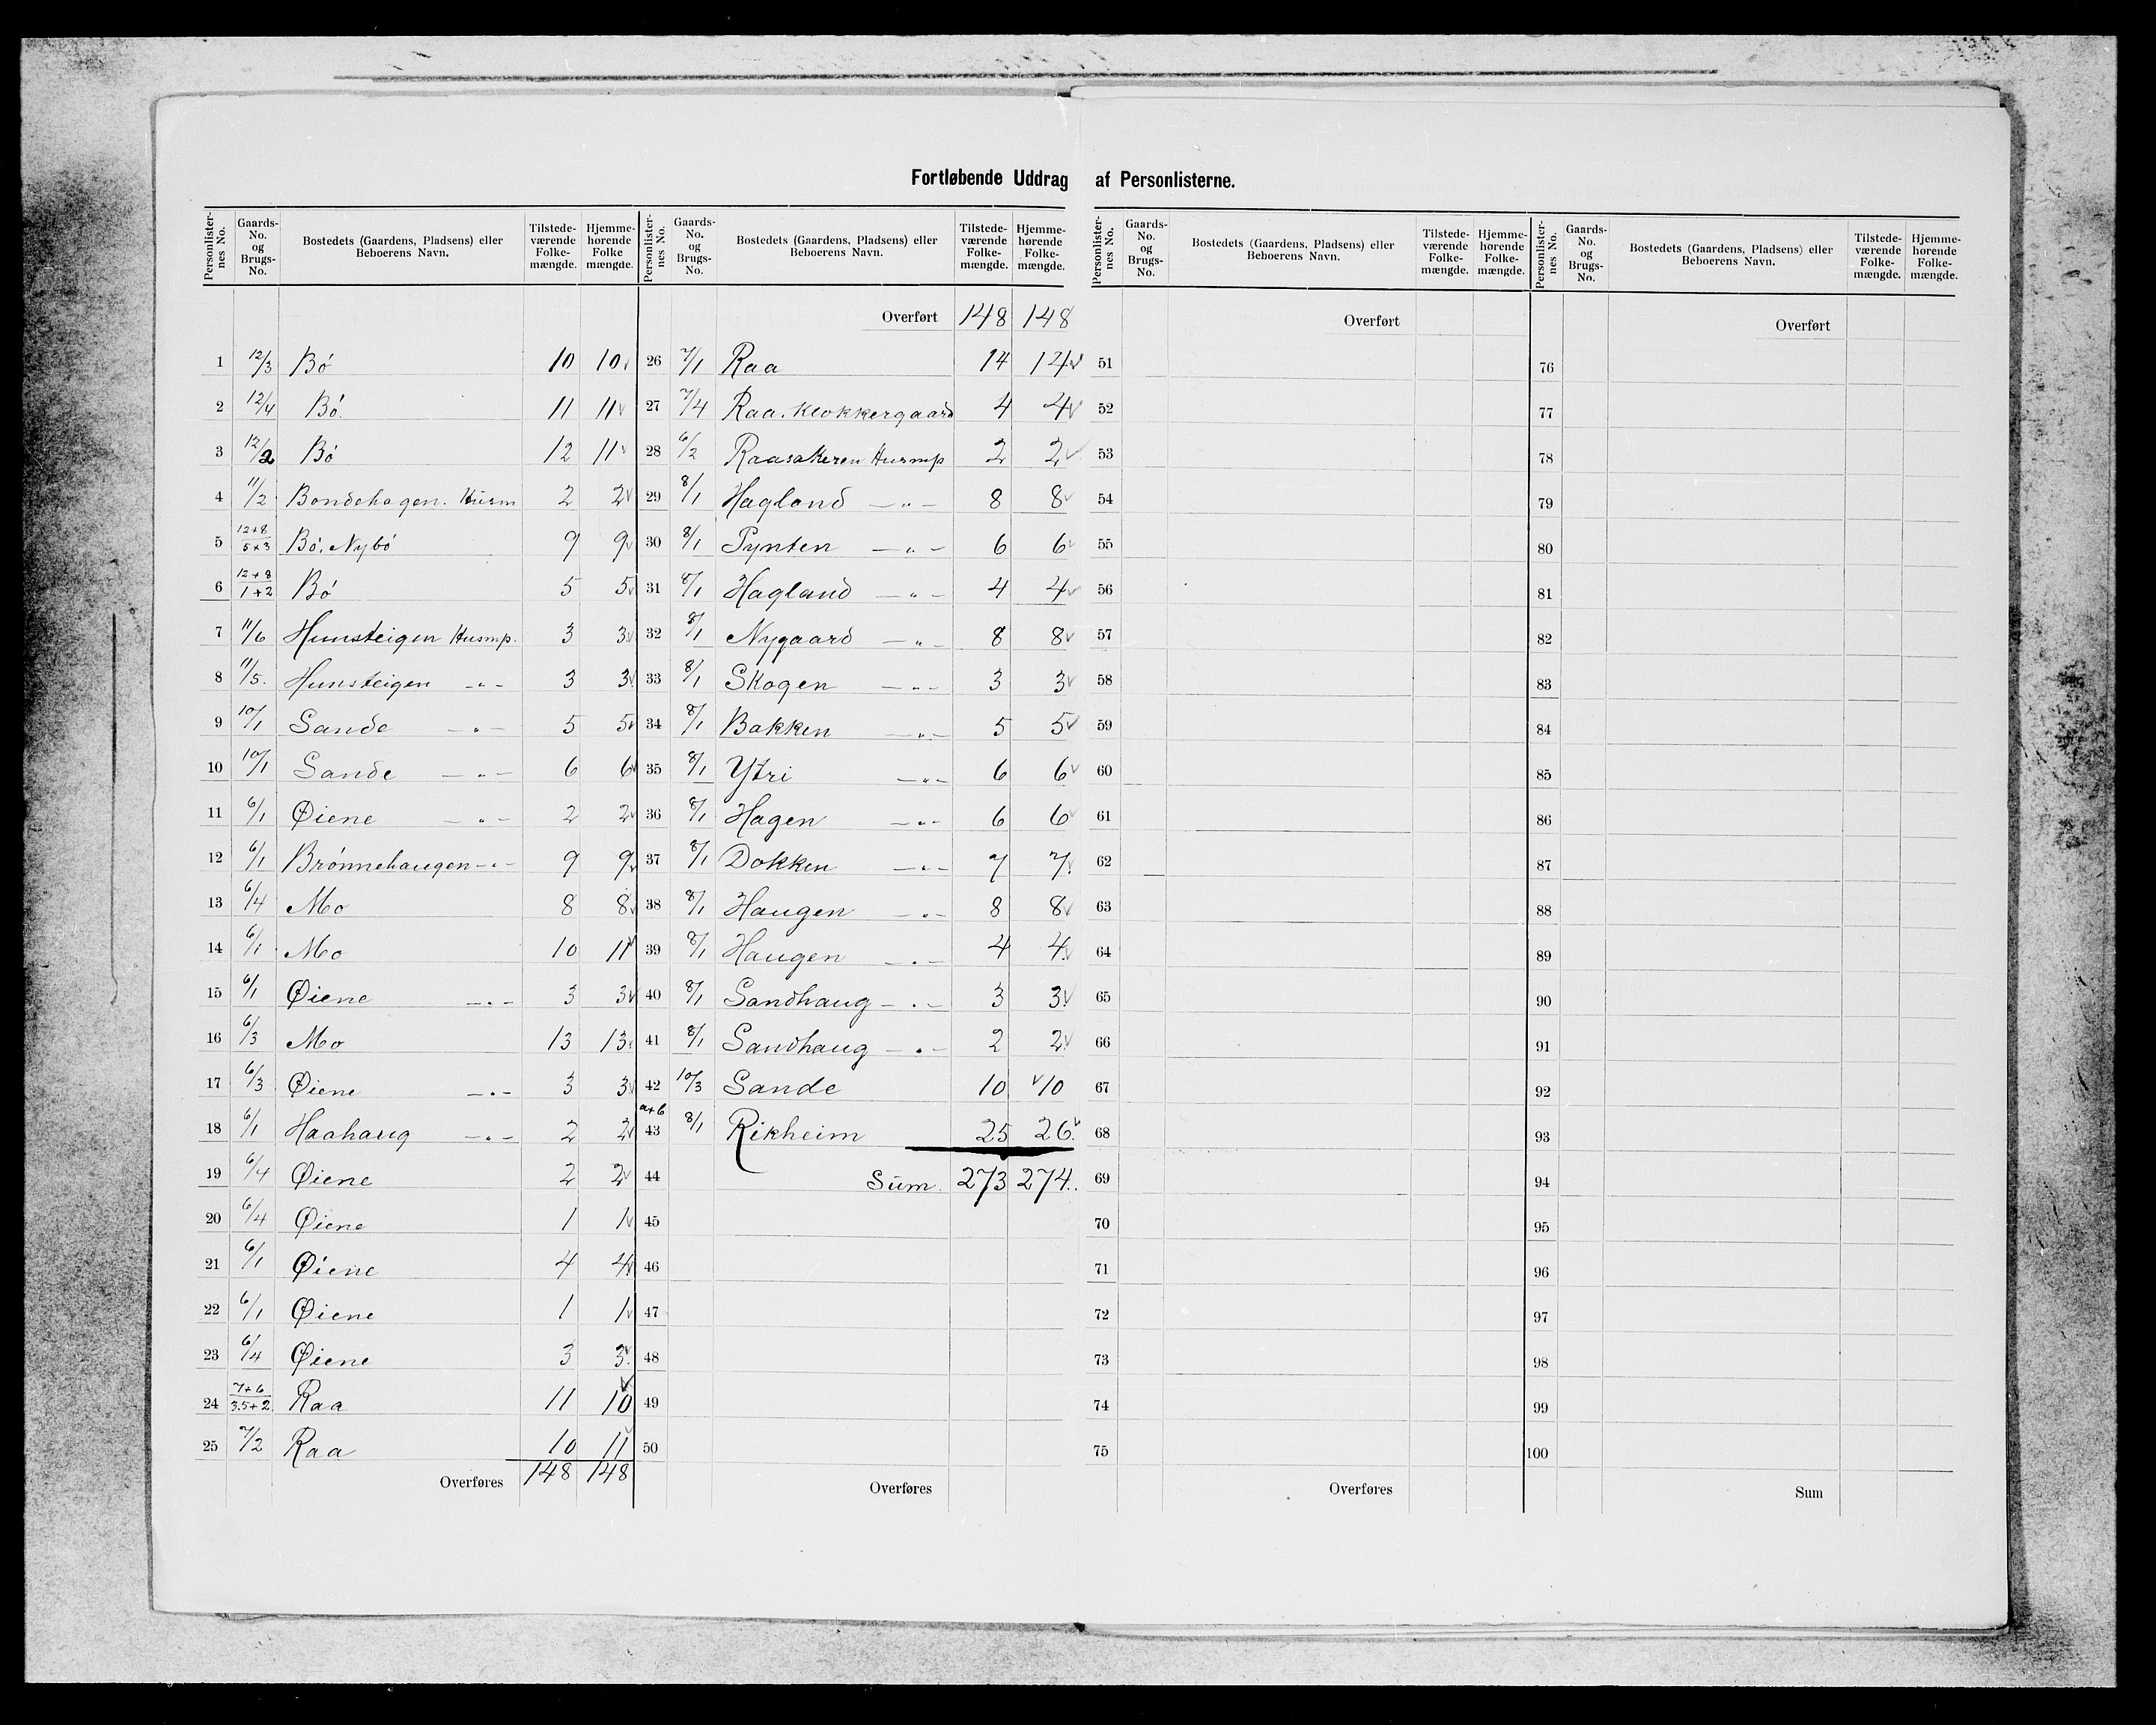 Fortløbende Uddrag af Personlisterne.
Personlister-nes No. | Gaards-No. og Brugs-No. | Bostedets (Gaardens, Pladsens) eller Beboerens Navn. | Tilstede-værende Folke-mængde. | Hjemme-hørende Folke mængde.
1 12/3 Bó 10 10
2 12/4 Bó 11 11
3 12/2 Bó 12 11
4 11/2 Bondehagen. Husm 2 2
5 12+8/5+3 Bó, Nybó 9 9
6 12+8/1+2 Bó 5 5
7 11/6 Hunsteigen Husmp. 3 3
8 11/5. Hunsteigen -"- 3 3
9 10/1 Sande -"- 5 5
10 10/1 Sande -"- 6 6
11 6/1 Øiene -"- 2 2
12 6/1 Brónnehaugen -"- 9 9
13 6/4 Mo 8 8
14 6/1 Mo 10 11
15 6/1 Øiene -"- 3 3
16 6/3 Mo 13 13
17 6/3 Øiene -"- 3 3
18 6/1 Haahaug -"- 2 2
19 6/4 Øiene 2 2
20 6/4 Øiene 1 1
21 6/1 Øiene 4 4
22 6/1 Øiene 1 1
23 6/4 Øiene 3 3
24 7+6/3.5+2 Raa 11 10
25 7/2 Raa 10 11
Overføres 148 148
Personlister-nes No. | Gaards-No. og Brugs-No. | Bostedets (Gaardens, Pladsens) eller Beboerens Navn. | Tilstede-værende Folke-mængde. | Hjemme-hørende Folke-mængde.
Overført 148 148
26 7/1 Raa 14 14
27 7/4 Raa. Klokkergaard 4 4
28 6/2 Raasakeren Husmp 2 2
29 8/1 Hagland -"- 8 8
30 8/1 Pynten -"- 6 6
31 8/1 Hagland -"- 4 4
32 8/1 Nygaard -"- 8 8
33 8/1 Skogen -"- 3 3
34 8/1 Bakken -"- 5 5
35 8/1 Ytri -"- 6 6
36 8/1 Hagen -"- 6 6
37 8/1 Dokken -"- 7 7
38 8/1 Haugen -"- 8 8
39 8/1 Haugen -"- 4 4
40 8/1 Sandhaug -"- 3 3
41 8/1 Sandhaug -"- 2 2
42 10/3 Sande 10 10
a+b 43 8/1 Rikheim 25 26
44 Sum. 273 274.
45
46
47
48
49
50
Overføres
Personlister-nes No. | Gaards-No. og Brugs-No. | Bostedets (Gaardens, Pladsens) eller Beboerens Navn. | Tilstede-værende Folke-mængde. | Hjemme-hørende Folke-mængde.
Overført
51
52
53
54
55
56
57
58
59
60
61
62
63
64
65
66
67
68
69
70
71
72
73
74
75
Overføres
Personlister-nes No. | Gaards-No. og Brugs-No. | Bostedets (Gaardens, Pladsens) eller Beboerens Navn. | Tilstede-værende Folke-mængde. | Hjemme-hørende Folke-mængde.
Overført
76
77
78
79
80
81
82
83
84
85
86
87
88
89
90
91
92
93
94
95
96
97
98
99
100
Sum